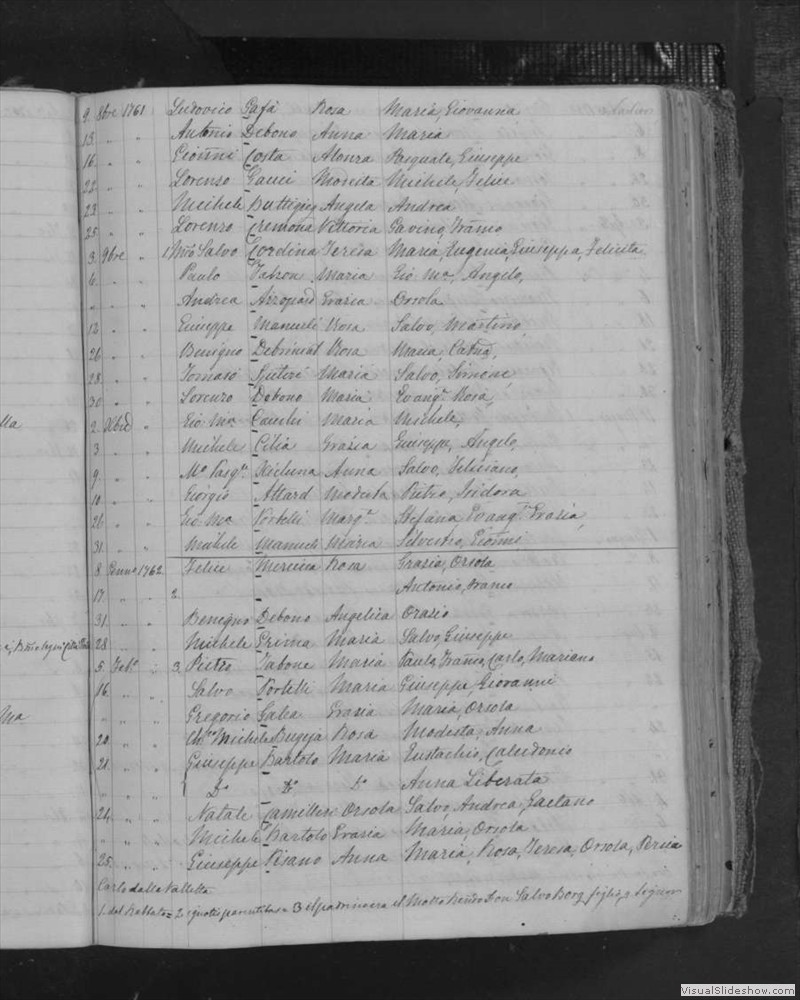 9. 8bre 1761 Ludovico Pafa Rosa Maria, Giovanna
13. " " Antonio Debono Anna Maria
16. " " Gionni Costa Alonza Pasquale, Giuseppe
22. " " Lorenzo Gauci Modesta Michele, Felice
23. " " Michele Buttigieg Angela Andrea
25. " " Lorenzo Cremona Vittoria Gavino, Franco
3. 9bre " 1 Salvo Cordina Teresa Maria, Eugenia, Giuseppa, Felicita
4. " " Paulo Fabron Maria Gio Ma, Angelo,
" " " Andrea Azzopard Grazia Orsola
12 " " Giuseppe Mamueli Rosa Salvo, Martino,
26. " " Benigno Rosa Maria,
28. " " Tomaso Sputeri Maria Salvo, Simone,
30. " " Lorenzo Debono Maria Evangta Rosa,
lla
2. Xbre " Gio Ma Cauchi Maria Michele,
3 " " Michele Cilia Grazia Giuseppe, Angelo,
9. " " Mo Pasqe Xicluna Anna Salvo, Feliciano,
10. " " Giorgio Attard Modesta Pietro, Isidora
26. " " Gio Ma Portelli Margta Stefana, Evangta Grazia,
31. " " Michele Mamueli Maria Silvestro, Gionni
8. Genno 1762. Felice Mercieca Rosa Grazia, Orsola
17 " " 2. - Antonio, Franco
31. " " Benegno Debono Angelica Orazio
28. " " Michele Grima Maria Salvo, Giuseppe
5. Febo " 3. Pietro Tabone Maria Paulo, Franco, Carlo, Mariano
16. " " Salvo Portelli Maria Giuseppe, Giovanni
Ma
" " " Gregorio Galea Grazia Maria, Orsola
20. " " Michele Bugeja Rosa Modesta, Anna
21. " " Giuseppe Bartolo Maria Eustachio, Calcidonio
" " " Do Do Do Anna Liberata
24. " " Natale Camilleri Orsola Salvo, Andrea, Gaetano
" " " Michele Bartolo Grazia Maria, Orsola
25. " " Giuseppe Pisano Anna Maria, Rosa, Teresa, Orsola,
Carlo dalla Valletta
1. del Rabbato = 2. ignotis parentibus = 3 il padrino era il Molto Rendo Don Salvo Borg, figlio,
VisualSlideshow.com